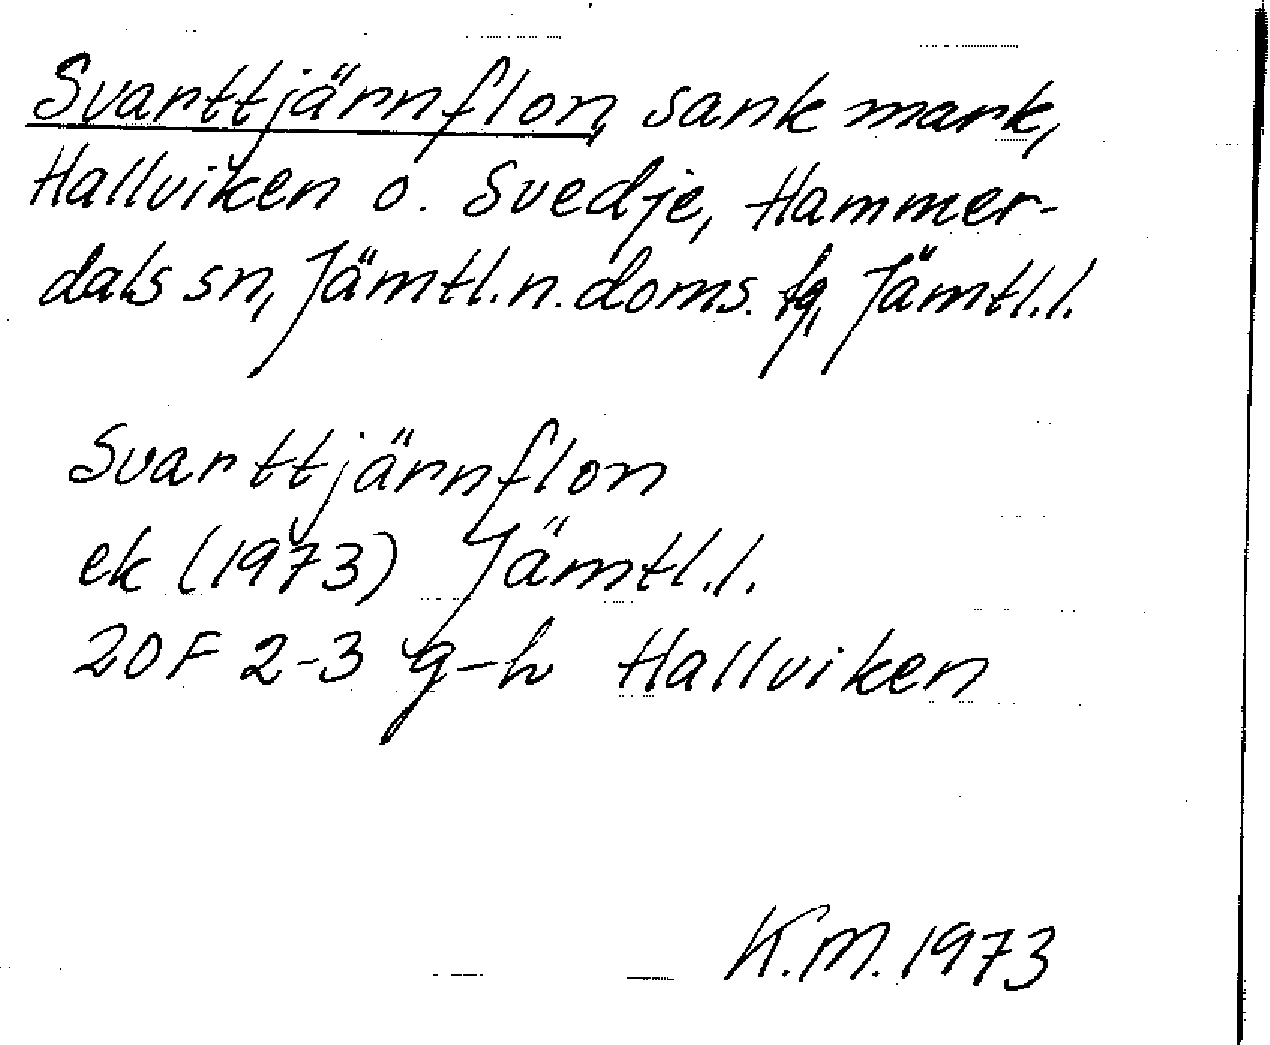 Svarttjärnflon, sank mark,
Hallviken o. Svedje, Hammer-
dals sn, Jämtl.n.doms. fq, Jämtl.l.
Svarttjärnflon
ek (1973) Jämtl.l.
20F 2-3 g-h Hallviken
K.M. 1973